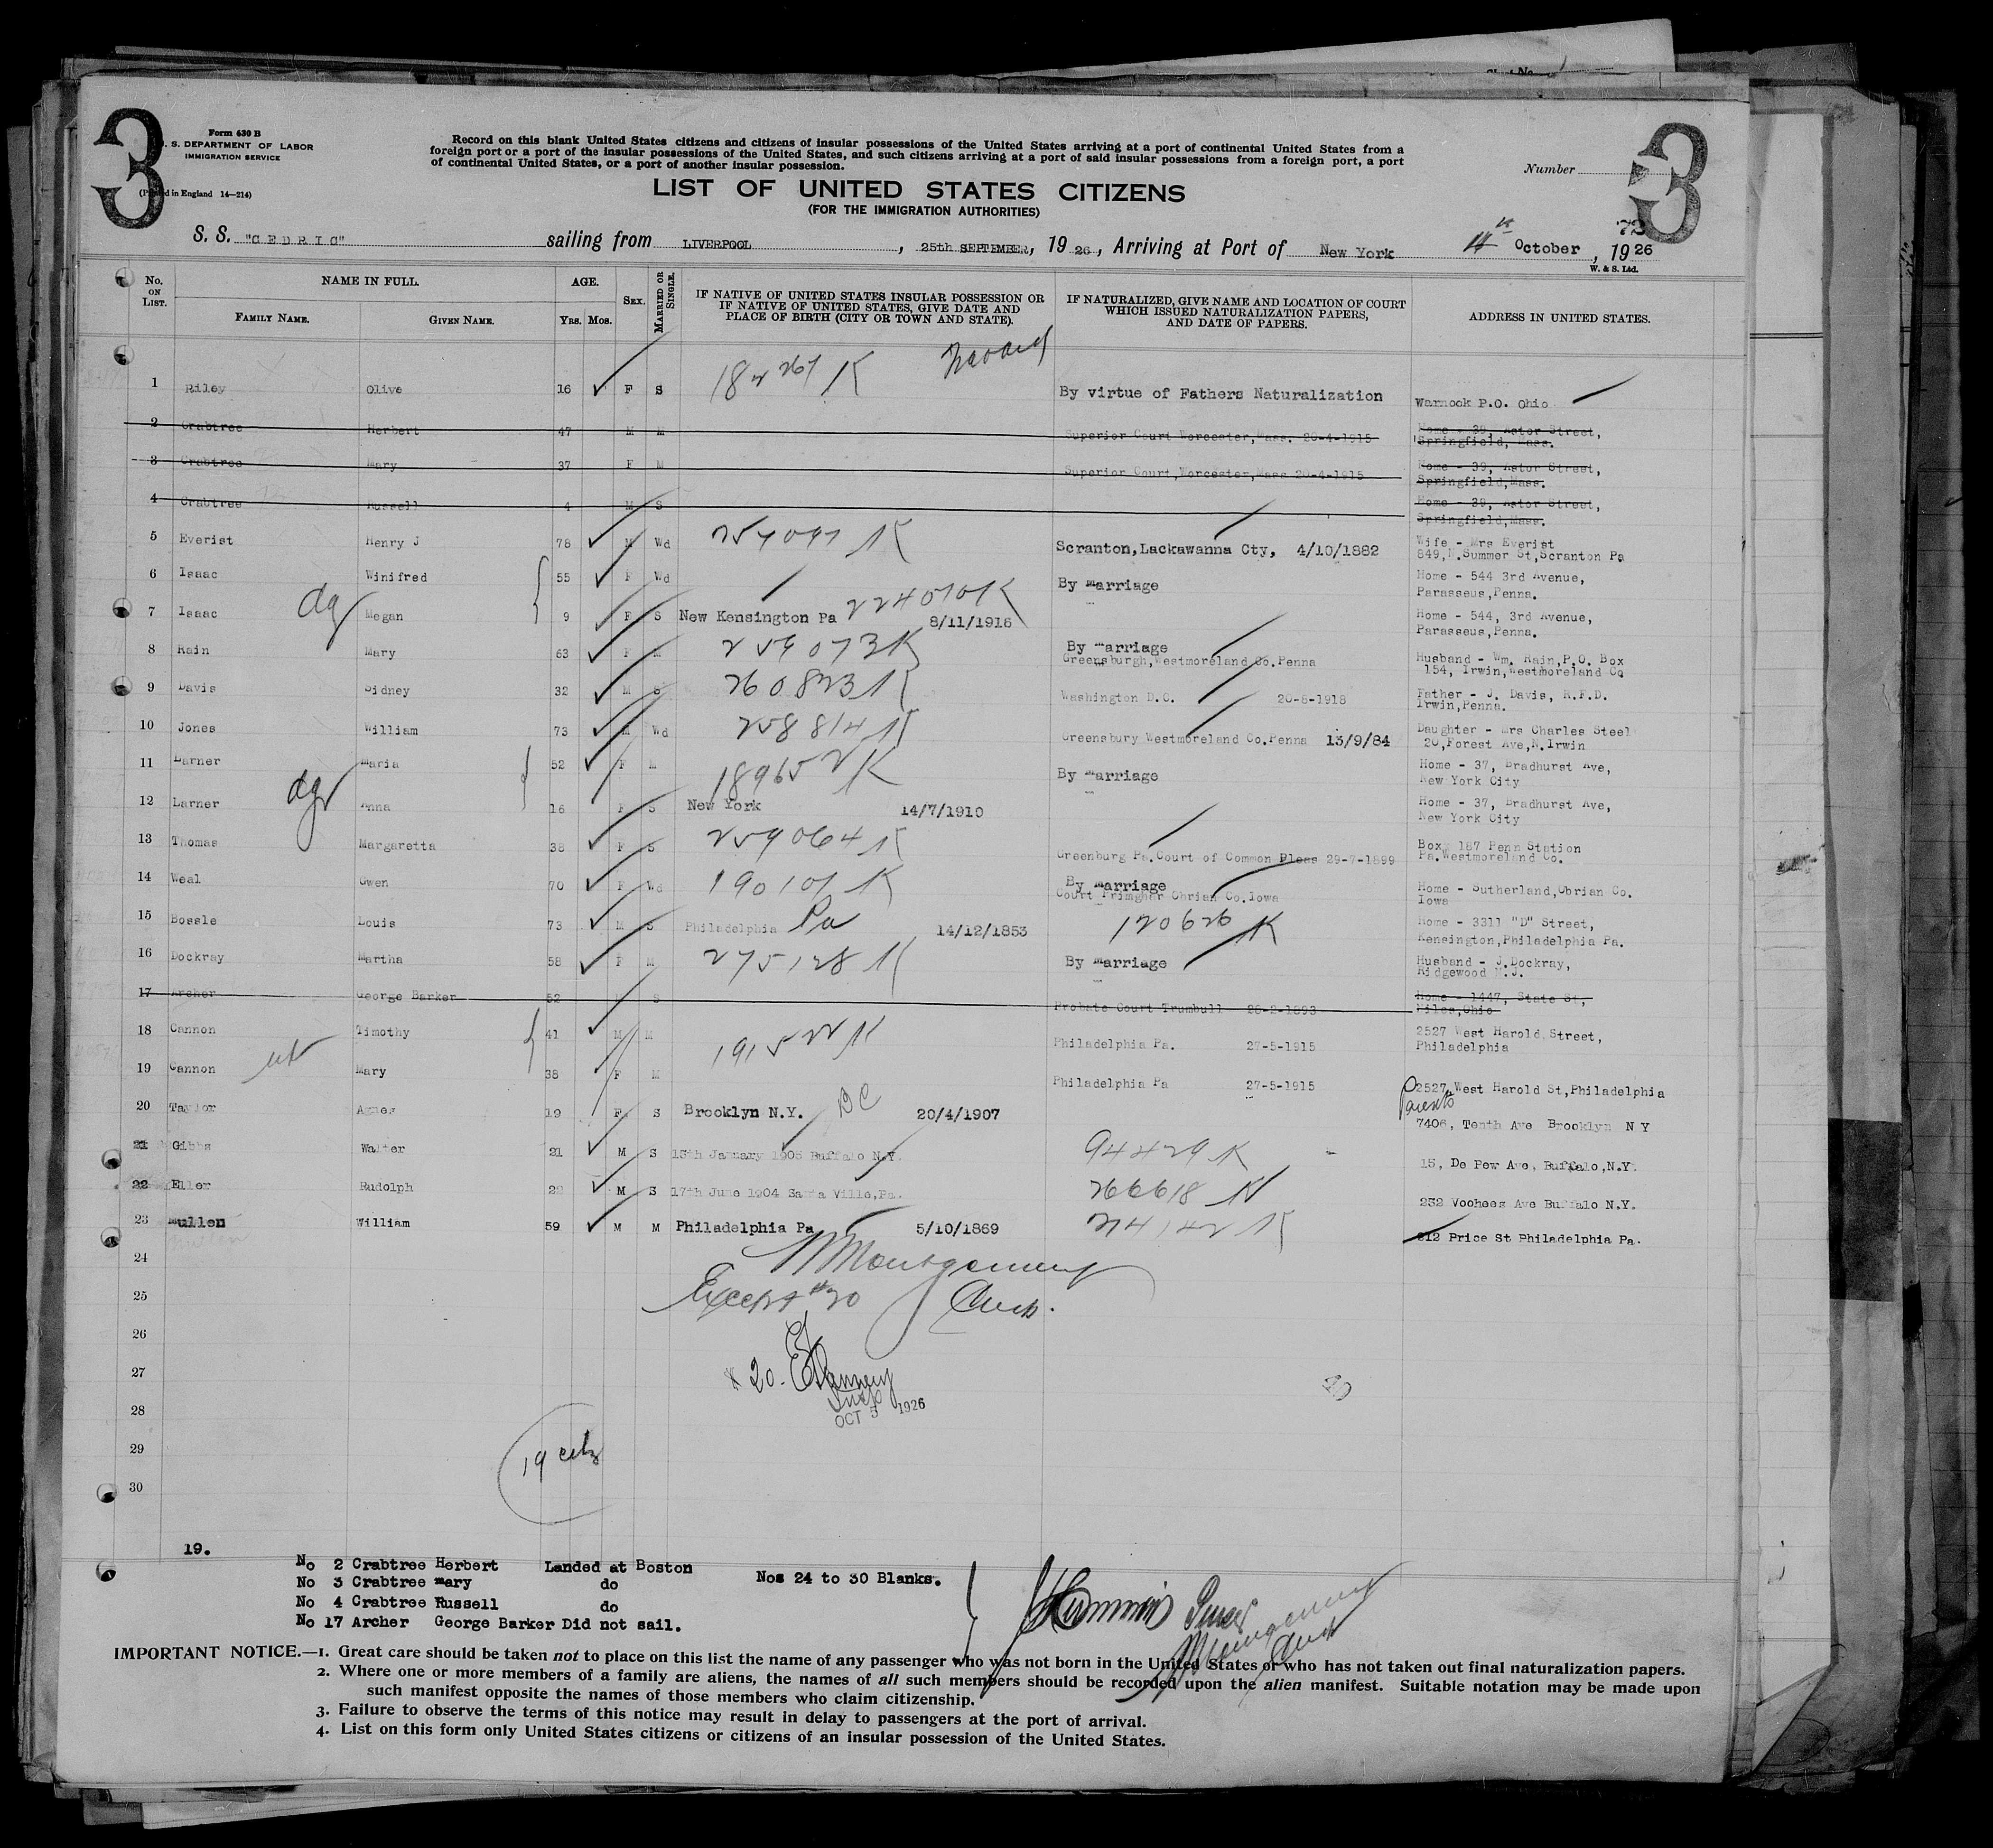 3
Form 630 B
U. S. DEPARTMENT OF LABOR
IMMIGRATION SERVICE
(Printed in England 14—214)
Record on this blank United States citizens and citizens of insular possessions of the United States arriving at a port of continental United States from a
foreign port or a port of the insular possessions of the United States, and such citizens arriving at a port of said insular possessions from a foreign port, a port
of continental United States, or a port of another insular possession.
Number
3
LIST OF UNITED STATES CITIZENS
(FOR THE IMMIGRATION AUTHORITIES)
72
S. S. "CEDRIC" sailing from LIVERPOOL, 25th SEPTEMBER, 1926, Arriving at Port of New York October, 1926
W. & S. Ltd.
No. ON LIST. NAME IN FULL. FAMILY NAME. GIVEN NAME. AGE. Yrs. Mos. SEX. MARRIED OR SINGLE.
IF NATIVE OF UNITED STATES INSULAR POSSESSION OR
IF NATIVE OF UNITED STATES, GIVE DATE AND
PLACE OF BIRTH (CITY OR TOWN AND STATE).
IF NATURALIZED, GIVE NAME AND LOCATION OF COURT
WHICH ISSUED NATURALIZATION PAPERS,
AND DATE OF PAPERS.
ADDRESS IN UNITED STATES.
1 Riley Olive 16 F S By virtue of Fathers Naturalization Warnock P.O. Ohio
2 Crabtree Herbert 47 M M Superior Court Worcester,Mass. 20-4-1915 Home - 39, Astor Street,
Springfield, Mass.
3 Crabtree Mary 37 F M Superior Court,Worcester,Mass 20-4-1915 Home - 39, Astor Street,
Springfield,Mass.
4 Crabtree Russell 4 M S Home - 39, Astor Street
Springfield,Mass.
5 Everist Henry J 78 M Wd Scranton,Lackawanna Cty, 4/10/1882 Wife - Mrs Everist
849,N.Summer St,Scranton Pa
6 Isaac Winifred 55 F Wd By marriage Home - 544 3rd Avenue,
Parasseus,Penna.
7 Isaac Megan 9 F S New Kensington Pa 224010 K 8/11/1916 Home - 544, 3rd Avenue,
Parasseus,Penna.
8 Rain Mary 63 F M 259073 K By marriage
Greensburgh,Westmoreland Co.Penna Husband - Wm. Rain,P.O. Box
154, Irwin,Westmoreland Co
9 Davis Sidney 32 M S 260823 K Washington D.C. 20-8-1918 Father - J. Davis, R.F.D.
Irwin,Penna.
10 Jones William 73 M Wd 258814 K Greensbury Westmoreland Co.Penna 13/9/84 Daughter - Mrs Charles Steel
20,Forest Ave,N.Irwin
11 Larner Maria 52 F M 189652 K By marriage Home - 37, Bradhurst Ave,
New York City
12 Larner Anna 16 F S New York 14/7/1910 Home - 37, Bradhurst Ave,
New York City
13 Thomas Margaretta 38 F S 259064 K Greenburg Pa.Court of Common Pleas 29-7-1899 Box 187 Penn Station
Pa.Westmoreland Co.
14 Weal Gwen 70 F Wd 190101 K By marriage
Court Primghar Obrian Co.Iowa Home - Sutherland,Obrian Co.
Iowa
15 Bossle Louis 73 M S Philadelphia Pa 14/12/1853 120626 K Home - 3311 "D" Street,
Kensington,Philadelphia Pa.
16 Dockray Martha 58 F M 275128 K By marriage Husband - J.Dockray,
Ridgewood N.J.
17 Archer George Barker 52 S Probate Court Trumbull Home - 1447, State St,
Niles,Ohio
18 Cannon Timothy 41 M M 191522 K Philadelphia Pa. 27-5-1915 2527 West Harold Street,
Philadelphia
19 Cannon Mary 38 F M Philadelphia Pa 27-5-1915 2527 West Harold St,Philadelphia
20 Taylor Agnes 19 F S Brooklyn N.Y. BC 20/4/1907 Parents
7406, Tenth Ave Brooklyn N Y
21 Gibbs Walter 21 M S 15th January 1905 Buffalo N.Y. 94429 K 15, De Pew Ave, Buffalo,N.Y.
22 Eller Rudolph 22 M S 17th June 1904 266618 K 232 Voohees Ave Buffalo N.Y.
23 Mullen William 59 M M Philadelphia Pa 5/10/1869 214142 K 212 Price St Philadelphia Pa.
24
25
26
27
28
29
30
Montgomery
Except #20
20.
Insp
OCT 5 1926
19
19.
No 2 Crabtree Herbert Landed at Boston
No 3 Crabtree Mary do
No 4 Crabtree Russell do
No 17 Archer George Barker Did not sail.
Nos 24 to 30 Blanks.
IMPORTANT NOTICE.—1. Great care should be taken not to place on this list the name of any passenger who was not born in the United States or who has not taken out final naturalization papers.
2. Where one or more members of a family are aliens, the names of all such members should be recorded upon the alien manifest. Suitable notation may be made upon
such manifest opposite the names of those members who claim citizenship.
3. Failure to observe the terms of this notice may result in delay to passengers at the port of arrival.
4. List on this form only United States citizens or citizens of an insular possession of the United States.